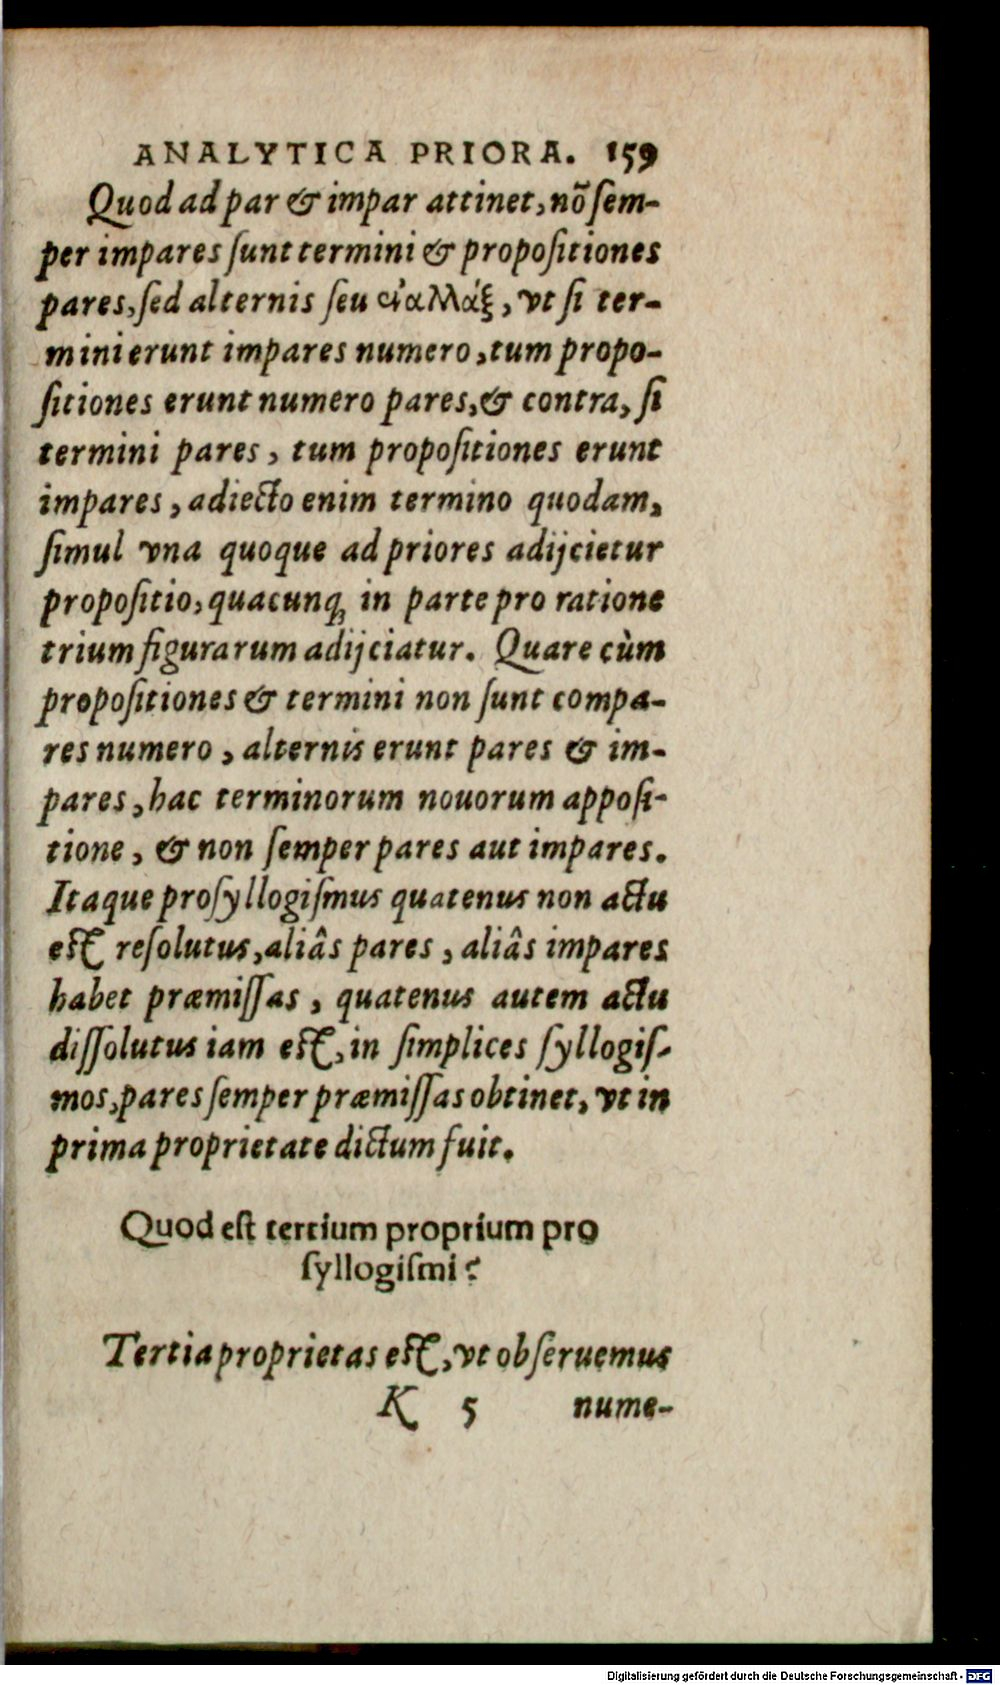 ANALYTICA PRIORA. 159
Quod ad par & impar attinet, nõ sem-
per impares sunt termini & propositiones
pares, sed alternis seu ἐναλλάξ, vt si ter-
mini erunt impares numero, tum propo-
sitiones erunt numero pares, & contra, si
termini pares, tum propositiones erunt
impares, adiecto enim termino quodam,
simul vna quoque ad priores adijcietur
propositio, quacunq; in parte pro ratione
trium figurarum adijciatur. Quare cùm
propositiones & termini non sunt compa-
res numero, alternis erunt pares & im-
pares, hac terminorum nouorum apposi-
tione, & non semper pares aut impares.
Itaque prosyllogismus quatenus non actu
est resolutus, aliâs pares, aliâs impares
habet præmissas, quatenus autem actu
dissolutus iam est, in simplices syllogis-
mos, pares semper præmissas obtinet, vt in
prima proprietate dictum fuit.
Quod est tertium proprium pro
syllogismi?
Tertia proprietas est, vt obseruemus
K 5 nume-
Digitalisierung gefördert durch die Deutsche Forschungsgemeinschaft - DFG